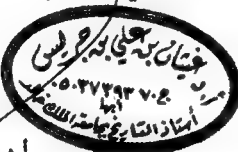 غيثان بن علي بن جريس
ج٠٥٠٣٧٣٩٣٧٠
أبها
أستاذ التاريخ بجامعة الملك خالد